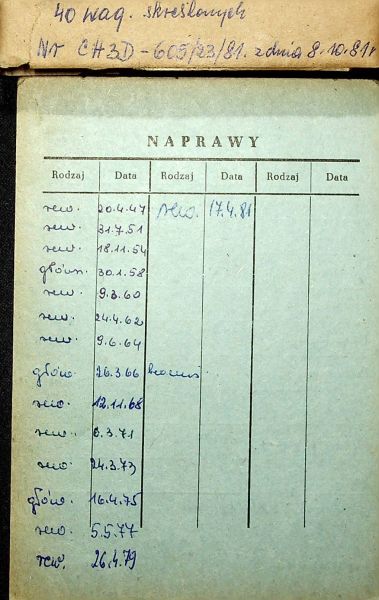 40 wag. skreślonych
Nr CH3D-605/23/81. z dnia 8.10.81r
NAPRAWY
Rodzaj Data Rodzaj Data Rodzaj Data
rew. 20.4.47 rew. 17.4.81
rew. 31.7.51
rew. 18.11.54
główn. 30.1.58
rew. 9.3.60
rew. 24.4.62
rew. 9.6.64
główn. 26.3.66
rew. 12.11.68
rew. 6.3.71
rew. 24.3.73
główn. 16.4.75
rew. 5.5.77
rew. 26.4.79